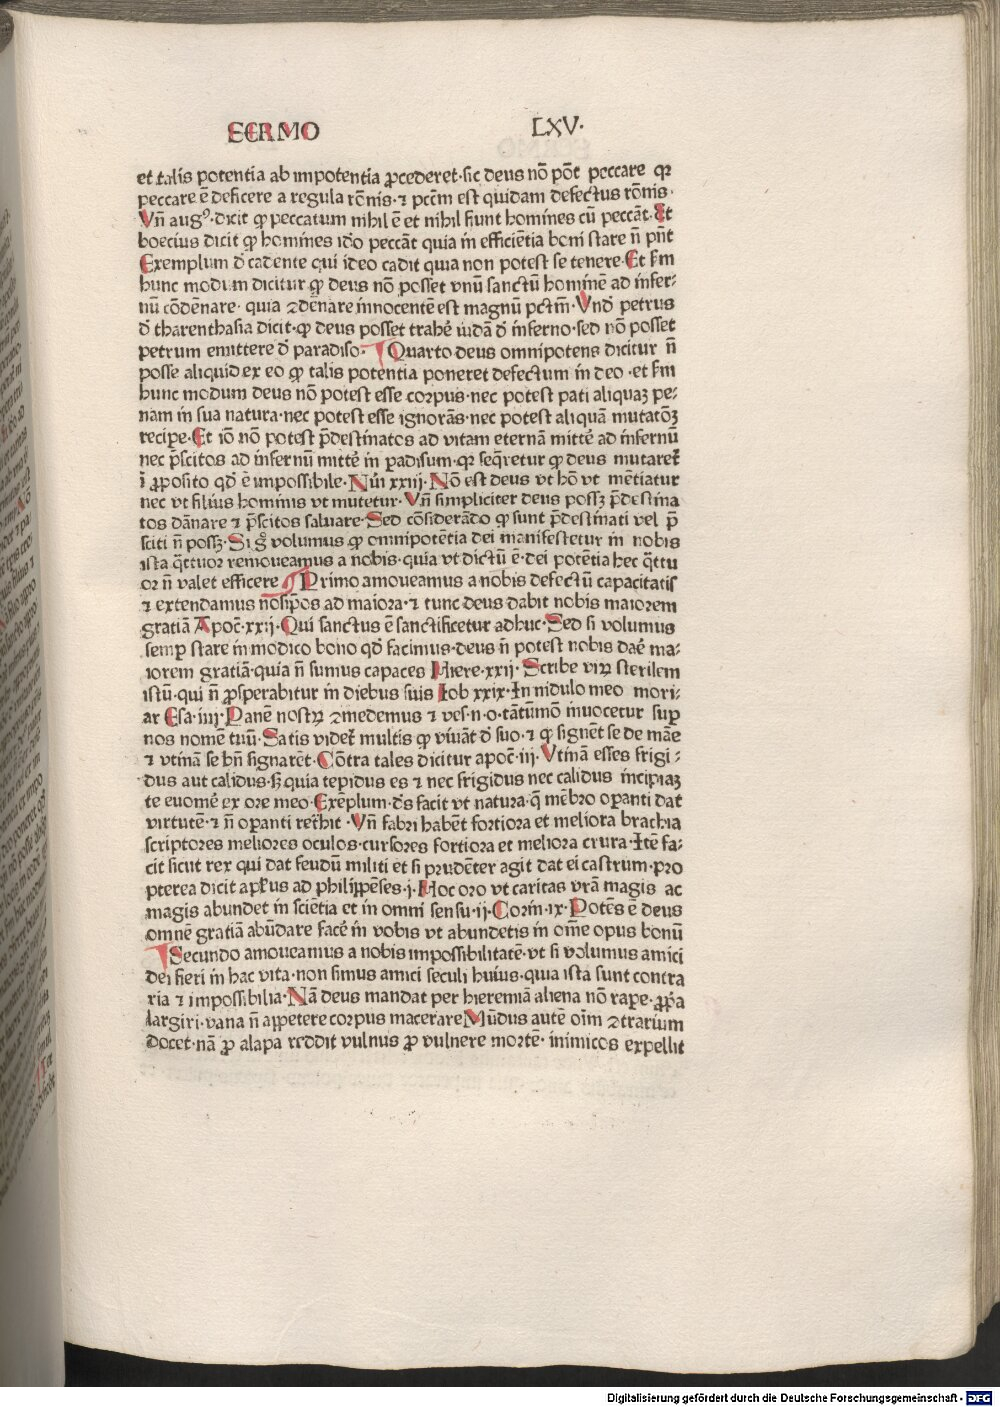 SERMO LXV·
et talis potentia ab impotentia ꝓcederet· sic deus nō pōt peccare qꝛ
peccare ē deficere a regula rōnis· ⁊ pctm̄ est quidam defectus rōnis·
Vn̄ augꝰ· dicit ꝙ peccatum nihil ē et nihil fiunt homines cū peccāt· Et
boecius dicit ꝙ homines idō peccāt quia in efficiētia boni stare n̄ pn̄t
Exemplum d̄ cadente qui ideo cadit quia non potest se tenere· Et s̄m
hunc modum dicitur ꝙ deus nō posset vnū sanctū hominē ad infer⸗
nū cōdēnare· quia ꝯdēnare innocentē est magnū pctm̄· Vnd̄ petrus
d̄ tharenthasia dicit· ꝙ deus posset trahē iudā d̄ inferno· sed nō posset
petrum emittere d̄ paradiso· ¶ Quarto deus omnipotens dicitur n̄
posse aliquid ex eo ꝙ talis potentia poneret defectum in deo· et s̄m
hunc modum deus nō potest esse corpus· nec potest pati aliquaꝫ pe⸗
nam in sua natura· nec potest esse ignorās· nec potest aliquā mutatōꝫ
recipe· Et iō nō potest p̄destinatos ad vitam eternā mittē ad infernū
nec p̄scitos ad infernū mittē in padisum· qꝛ seq̄retur ꝙ deus mutaret̄
ī ꝓposito qd̄ ē impossibile· Nūi xxiij· Nō est deus vt hō vt mētiatur
nec vt filius hominis vt mutetur· Vn̄ simpliciter deus possꝫ p̄destina
tos dānare ⁊ p̄scitos saluare· Sed cōsiderādo ꝙ sunt p̄destinati vel p̄
sciti n̄ possꝫ· Si gͦ volumus ꝙ omnipotētia dei manifestetur in nobis
ista q̄ttuor remoueamus a nobis· quia vt dictū ē· dei potētia hec q̄ttu
or n̄ valet efficere ¶ Primo amoueamus a nobis defectū capacitatis
⁊ extendamus nosip̄os ad maiora· ⁊ tunc deus dabit nobis maiorem
gratiā Apoc̄· xxij· Qui sanctus ē sanctificetur adhuc· Sed si volumus
semp stare in modico bono qd̄ facimus· deus n̄ potest nobis daē ma⸗
iorem gratiā· quia n̄ sumus capaces Hiere· xxij· Scribe viꝝ sterilem
istū· qui n̄ ꝓsperabitur in diebus suis Iob xxix· In nidulo meo mori⸗
ar Esa· iiij· Panē nostꝝ ꝯmedemus ⁊ ves· n· o· tātūmō inuocetur sup
nos nomē tuū· Satis videt̄ multis ꝙ viuāt d̄ suo· ⁊ ꝙ signēt se de māe
⁊ vtinā se bn̄ signarēt· Cōtra tales dicitur apoc̄· iij· Vtinā esses frigi⸗
dus aut calidus· sꝫ quia tepidus es ⁊ nec frigidus nec calidus incipiaꝫ
te euomē ex ore meo· Exēplum· dꝰs facit vt natura· q̄ mēbro oꝑanti dat
virtutē· ⁊ n̄ oꝑanti ret̄hit· Vn̄ fabri habēt fortiora et meliora brachia
scriptores meliores oculos· cursores fortiora et meliora crura· Itē fa⸗
cit sicut rex qui dat feudū militi et si prudēter agit dat ei castrum· pro
pterea dicit apl̄us ad philippēses· j· Hoc oro vt caritas vr̄ā magis ac
magis abundet in sciētia et in omni sensu· ij· Corin· ix· Potēs ē deus
omnē gratiā abūdare facē in vobis vt abundetis in om̄e opus bonū
¶ Secundo amoueamus a nobis impossibilitatē· vt si volumus amici
dei fieri in hac vita· non simus amici seculi huius· quia ista sunt contra
ria ⁊ impossibilia· Nā deus mandat per hieremiā aliena nō rape· ꝓp̄a
largiri· vana n̄ appetere corpus macerare Mūdus autē oīm ꝯtrarium
docet· nā ꝓ alapa reddit vulnus ꝓ vulnere mortē· inimicos expellit
Digitalisierung gefördert durch die Deutsche Forschungsgemeinschaft - DFG